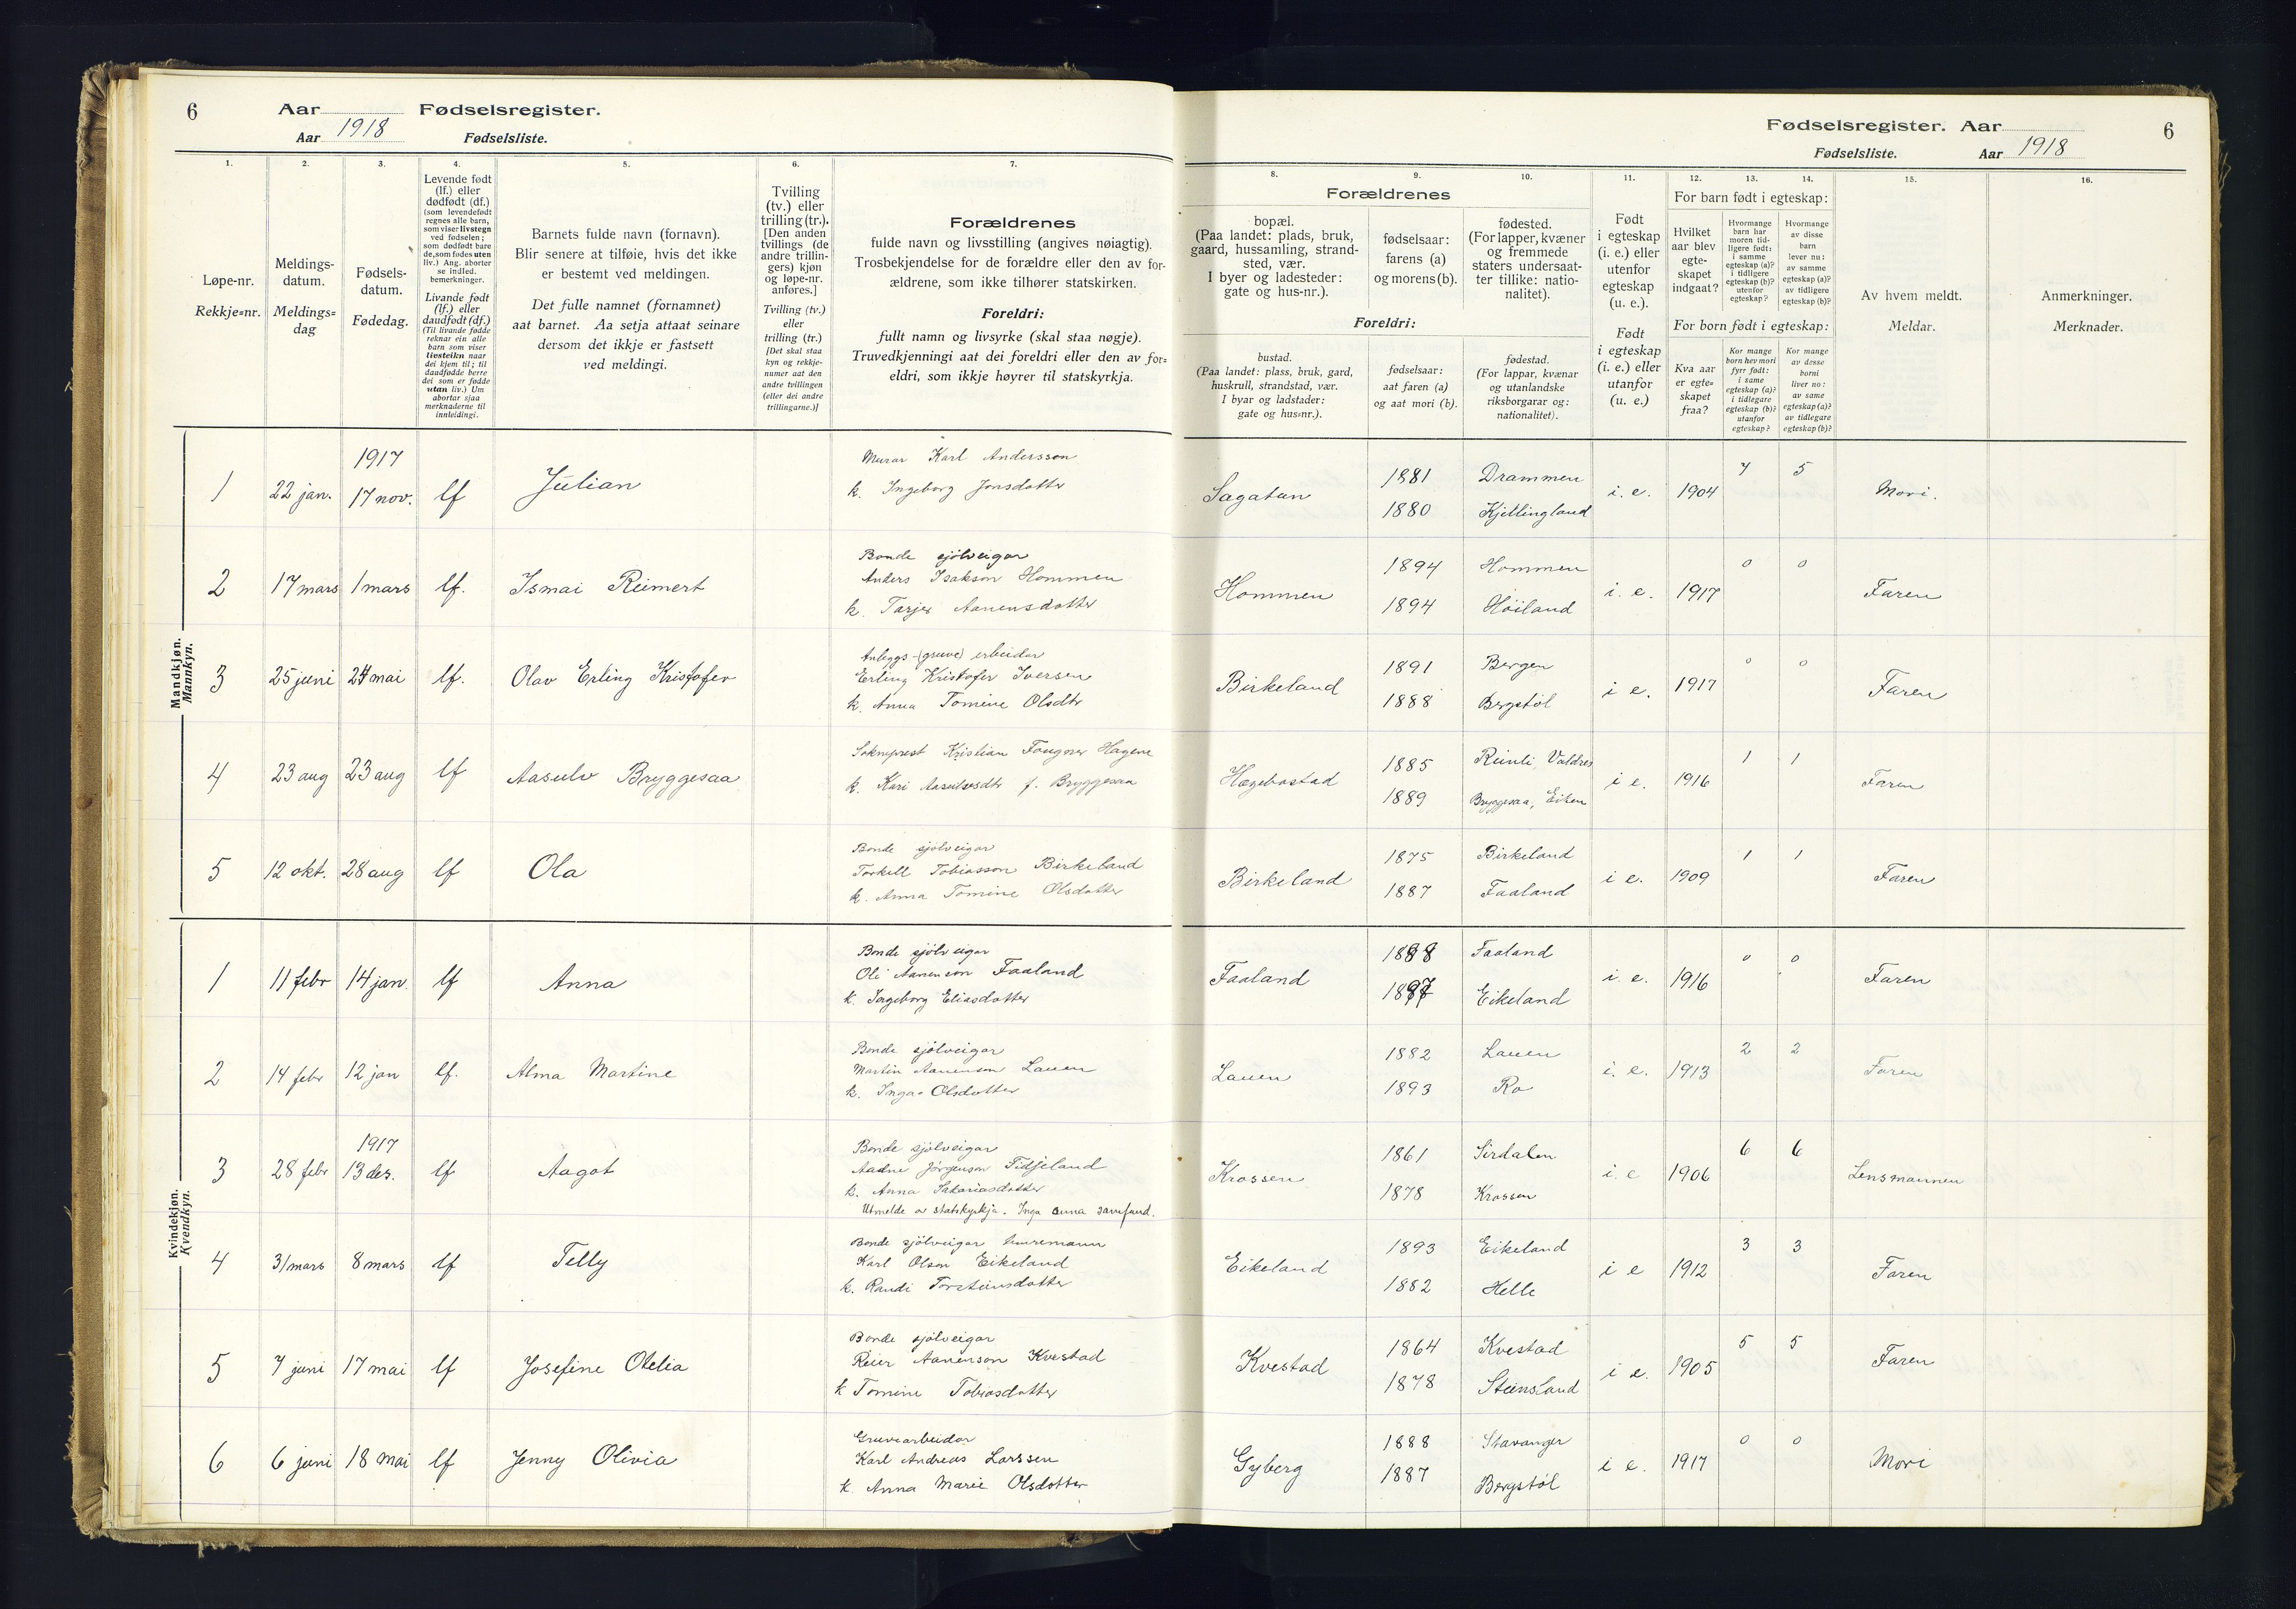 6
Aar
Fødselsregister.
Aar 1918
Fødselsliste.
1.
2.
3.
4.
5.
6.
7.
Løpe-nr.
Rekkje=nr.
Meldings-
datum.
Meldings=
dag
Fødsels-
datum.
Fødedag.
Levende født
(lf.) eller
dødfødt (df.)
(som levendefødt
regnes alle barn,
som viser livstegn
ved fødselen;
som dødfødt bare
de, som fødes uten
liv.) Ang. aborter
se indled.
bemerkninger.
Livande født
(lf.) eller
daudfødt (df.)
(Til livande fødde
reknar ein alle
barn som viser
livsteikn naar
dei kjem til; til
daudfødde berre
dei som er fødde
utan liv.) Um
abortar sjaa
merknaderne til
innleidingi.
Barnets fulde navn (fornavn).
Blir senere at tilføie, hvis det ikke
er bestemt ved meldingen.
Det fulle namnet (fornamnet)
aat barnet. Aa setja attaat seinare
dersom det ikkje er fastsett
ved meldingi.
Tvilling
(tv.) eller
trilling (tr.).
[Den anden
tvillings (de
andre trillin-
gers) kjøn
og løpe-nr.
anføres.]
Tvilling (tv.)
eller
trilling (tr.)
[Det skal staa
kyn og rekkje-
numer aat den
andre tvillingen
(eller dei andre
trillingarne.)]
Forældrenes
fulde navn og livsstilling (angives nøiagtig).
Trosbekjendelse for de forældre eller den av for-
ældrene, som ikke tilhører statskirken.
Foreldri:
fullt namn og livsyrke (skal staa nøgje).
Truvedkjenningi aat dei foreldri eller den av for=
eldri, som ikkje høyrer til statskyrkja.
Mandkjøn.
Mannkyn.
1917
1 22 jan. 17 nov. lf Julian
Murar Karl Andersson
k. Ingeborg Jonsdotter
2 17 mars 1 mars lf. Ismai Reimert
Bonde sjölveigar
Anders Isakson Hommen
k. Tarjer Aanensdotter
3 25 juni 24 mai lf. Olav Erling Kristofer
Anleggs-(gruve) arbeidar
Erling Kristofer Iversen
k. Anna Tomine Olsdtr
4 23 aug 23 aug lf Aasulv Bryggesaa
Sokneprest Kristian Fougner Hagene
k. Kari Aasulvsdtr f. Bryggesaa
5 12 okt. 28 aug lf Ola
Bonde sjölveigar
Torkell Tobiasson Birkeland
k. Anna Tomine Olsdotter
Kvindekjøn.
Kvendkyn.
1 11 febr 14 jan. lf Anna
Bonde sjölveigar
Oli Aanenson Faaland
k. Ingeborg Eliasdotter
2 14 febr 12 jan lf. Alma Martine
Bonde sjölveigar
Martin Aanenson Lauen
k. Inga Olsdotter
1917
3 28 febr 13 des. lf Aagot
Bonde sjölveigar
Aadne Jörgenson Tidjeland
k. Anna Sakariasdotter
Utmelde av statskyrkja. Inga anna samfund.
4 31 mars 8 mars lf Telly
Bonde sjölveigar
Karl Olson Eikeland
k. Randi Torsteinsdotter
5 7 juni 17 mai lf Josefine Otelia
Bonde sjölveigar
Reier Aanenson Kvestad
k Tomine Tobiasdotter
6 6 juni 18 mai lf Jenny Olivia
Gruvearbeidar
Karl Andreas Larssen
k. Anna Marie Olsdotter
Fødselsregister. Aar
6
Fødselsliste.
Aar 1918
8.
9.
10.
11.
12.
13.
14.
15.
16.
Forældrenes
bopæl.
(Paa landet: plads, bruk,
gaard, hussamling, strand-
sted, vær.
I byer og ladesteder:
gate og hus-nr.).
fødselsaar:
farens (a)
og morens (b).
fødested.
(For lapper, kvæner
og fremmede
staters undersaat-
ter tillike: natio-
nalitet).
Foreldri:
bustad.
(Paa landet: plass, bruk, gard,
huskrull, strandstad, vær.
I byar og ladstader:
gate og hus=nr.).
fødselsaar:
aat faren (a)
og aat mori (b).
fødestad.
(For lappar, kvænar
og utanlandske
riksborgarar og:
nationalitet).
Født
i egteskap
(i. e.) eller
utenfor
egteskap
(u. e.).
Født
i egteskap
(i. e.) eller
utanfor
(u. e.)
For barn født i egteskap:
Hvilket
aar blev
egte-
skapet
indgaat?
Hvormange
barn har
moren tid-
ligere født:
i samme
egteskap (a)?
i tidligere
egteskap (b)?
utenfor
egteskap?
Hvormange
av disse
barn
lever nu:
av samme
egteskap (a)?
av tidligere
egteskap (b)?
For born født i egteskap:
Kva aar
er egte=
skapet
fraa?
Kor mange
born hev mori
fyrr født:
i same
egteskap (a)?
i tidlegare
egteskap (b)?
utanfor
egteskap?
Kor mange
av desse
borni
liver no:
av same
egteskap (a)?
av tidlegare
egteskap (b)?
Av hvem meldt.
Meldar.
Anmerkninger.
Merknader.
Sagatun 1881 Drammen i. e. 1904 7 5 Mori.
1880 Kjellingland
Hommen 1894 Hommen i. e. 1917 0 0 Faren
1894 Höiland
Birkeland 1891 Bergen i e. 1917 0 0 Faren
1888 Bergstöl
Hægebostad 1885 Reinli, Valdres i e. 1916 1 1 Faren
1889 Bryggesaa, Eiken
Birkeland 1875 Birkeland i e. 1909 1 1 Faren
1887 Faaland
Faaland 1888 Faaland i. e. 1916 0 0 Faren
Eikeland
Lauen 1882 Lauen i. e. 1913 2 2 Faren
1893 Ro
Krossen 1861 Sirdalen i. e 1906 6 6 Lensmannen
1878 Krossen
Eikeland 1893 Eikeland i e 1912 3 3 Faren
1882 Helle
Kvestad 1864 Kvestad i e. 1905 5 5 Faren
1878 Steinsland
Gyberg 1888 Stavanger i e. 1917 0 0 Mori
1887 Bergstöl